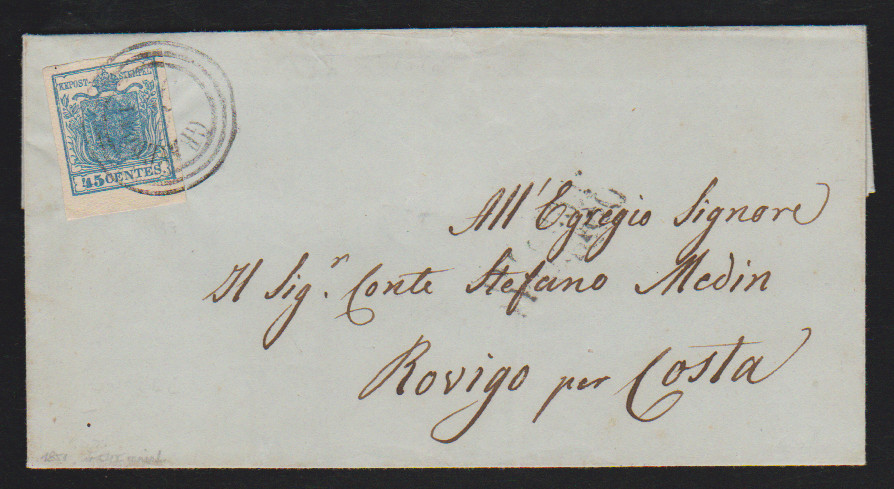 KKPOST-STEMPEL
45 CENTES.
All' Egregio Signore
Il Sig.r Conte Stefano Medin
Rovigo per Costa
1850